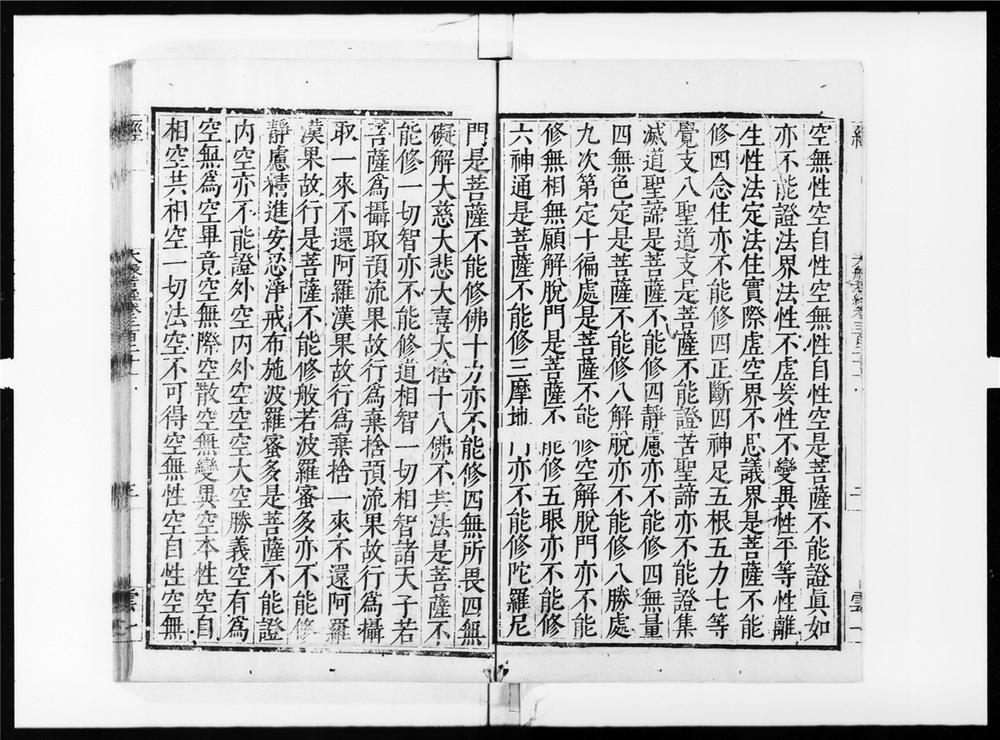 空無性空自性空無性自性空是菩薩不能證眞如
亦不能證法界法性不虛妄性不變異性平等性離
生性法定法住實際虛空界不思議界是菩薩不能
修四念住亦不能修四正斷四神足五根五力七等
覺支八聖道支是菩薩不能證苦聖諦亦不能證集
滅道聖諦是菩薩不能修四靜慮亦不能修四無量
四無色定是菩薩不能修八解脫亦不能修八勝處
九次第定十徧處是菩薩不能修空解脫門亦不能
修無相無願解脫門是菩薩不能修五眼亦不能修
六神通是菩薩不能修三摩地門亦不能修陀羅尼
門是菩薩不能修佛十力亦不能修四無所畏四無
礙解大慈大悲大喜大捨十八佛不共法是菩薩不
能修一切智亦不能修道相智一切相智諸天子若
菩薩爲攝取預流果故行爲棄捨預流果故行爲攝
取一來不還阿羅漢果故行爲棄捨一來不還阿羅
漢果故行是菩薩不能修般若波羅蜜多亦不能修
靜慮精進安忍淨戒布施波羅蜜多是菩薩不能證
內空亦不能證外空內外空空空大空勝義空有爲
空無爲空畢竟空無際空散空無變異空本性空自
相空共相空一切法空不可得空無性空自性空無